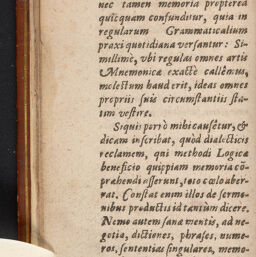 nec tamen memoria propterea
quicquam confunditur, quia in
regularum Grammaticalium
praxi quotidiana versantur: Si-
millimè, vbi regulas omnes artis
Mnemonicæ exactè callemus,
molestum haud erit, ideas omnes
propriis suis circumstantiis sta-
tim vestire.
Siquis porrò mihi causetur, &
dicam inscribat, quòd dialecticis
reclamem, qui methodi Logicæ
beneficio quippiam memoria cō-
præhendi asserunt, toto cœlo aber-
rat. Constat enim illos de sermo-
nibus productis id tantùm dicere.
Nemo autem sanæ mentis, ad ne-
gotia, dictiones, phrases, nume-
ros, sententias singulares, memo-